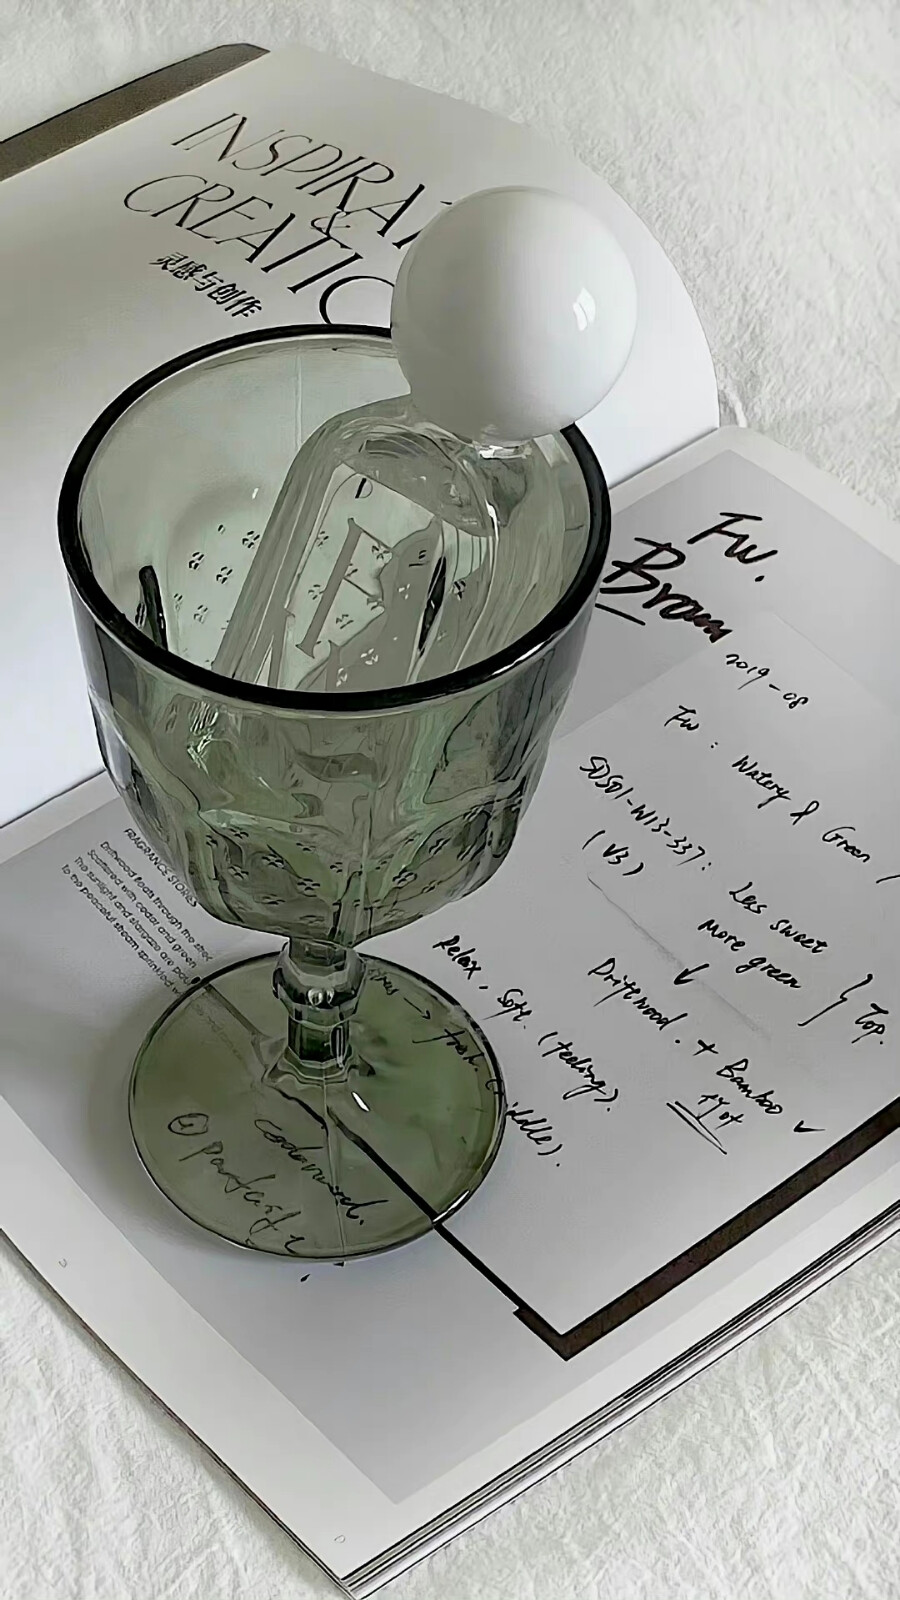 INSPIRAT
&
CREATIO
灵感与创作
D
Fw.
Brown
2019-08
Fw : Watery & Green
SDSD1-W13-337: Less sweet
(V3) More green } Top.
Driftwood. + Bamboo
Relax, Soft. (feeling).
Cedarwood.
FRAGRANCE STORIES
Driftwood floats through the
Scattered with cedar and green
The sunlight and stargaze are
to the peaceful stream sprinkled
D